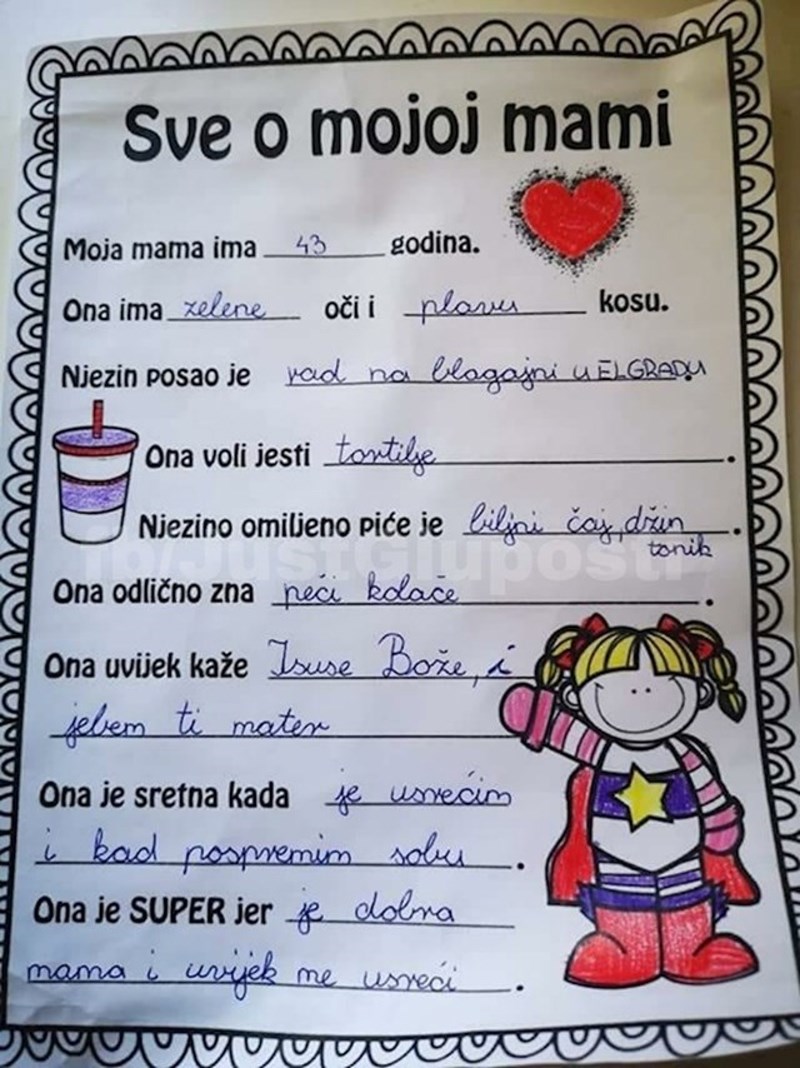 Sve o mojoj mami
Moja mama ima 43 godina.
Ona ima zelene oči i plavu kosu.
Njezin posao je rad na blagajni u ELGRADU
Ona voli jesti tortilje.
Njezino omiljeno piće je biljni čaj, džin
tonik.
fb/JustGluposti
Ona odlično zna peći kolače.
Ona uvijek kaže Isuse Bože, i
jebem ti mater
Ona je sretna kada je usrećim
i kad pospremim sobu.
Ona je SUPER jer je dobra
mama i uvijek me usreći.